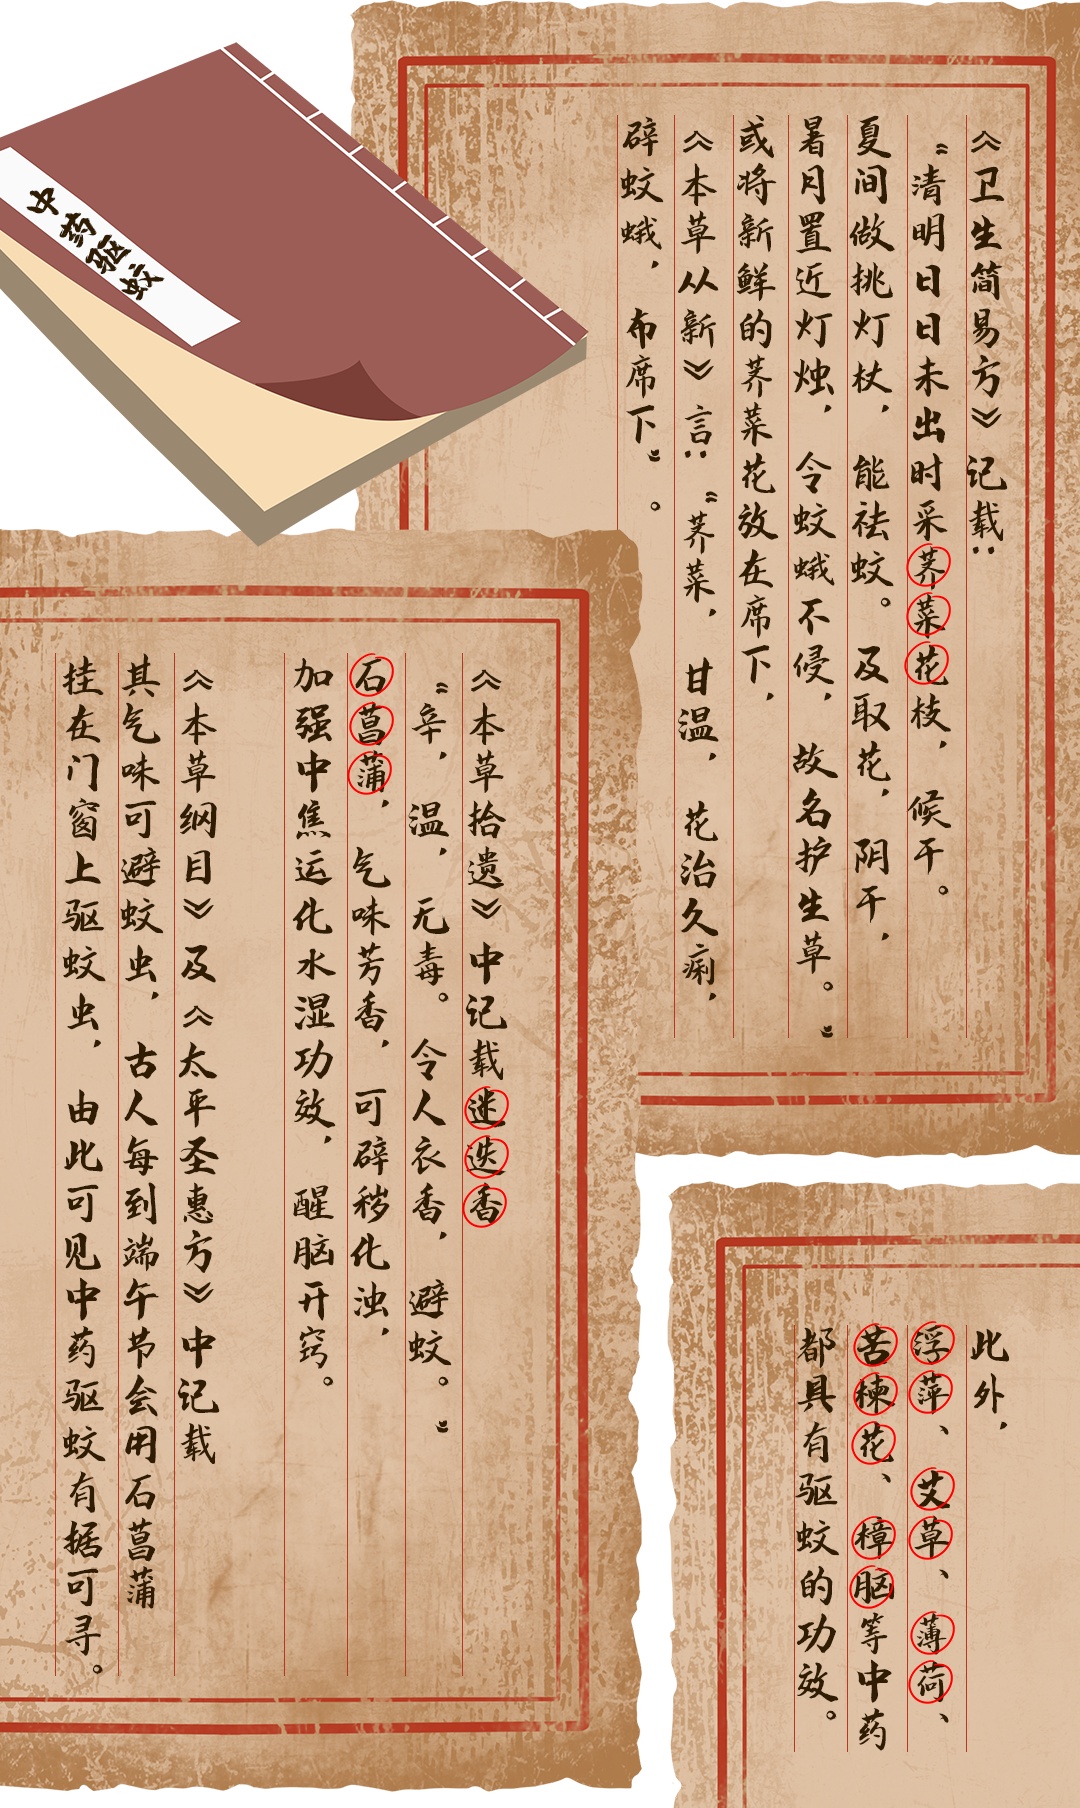 中药驱蚊
《卫生简易方》记载：
“清明日日未出时采荠菜花枝，候干。
夏间做挑灯杖，能祛蚊。及取花，阴干，
暑月置近灯烛，令蚊蛾不侵，故名护生草。”
或将新鲜的荠菜花放在席下，
《本草从新》言：“荠菜，甘温，花治久痢，
辟蚊蛾，布席下”。
《本草拾遗》中记载迷迭香
“辛，温，无毒。令人衣香，避蚊。”
石菖蒲，气味芳香，可辟秽化浊，
加强中焦运化水湿功效，醒脑开窍。
《本草纲目》及《太平圣惠方》中记载
其气味可避蚊虫，古人每到端午节会用石菖蒲
挂在门窗上驱蚊虫，由此可见中药驱蚊有据可寻。
此外，
浮萍、艾草、薄荷、
苦楝花、樟脑等中药
都具有驱蚊的功效。